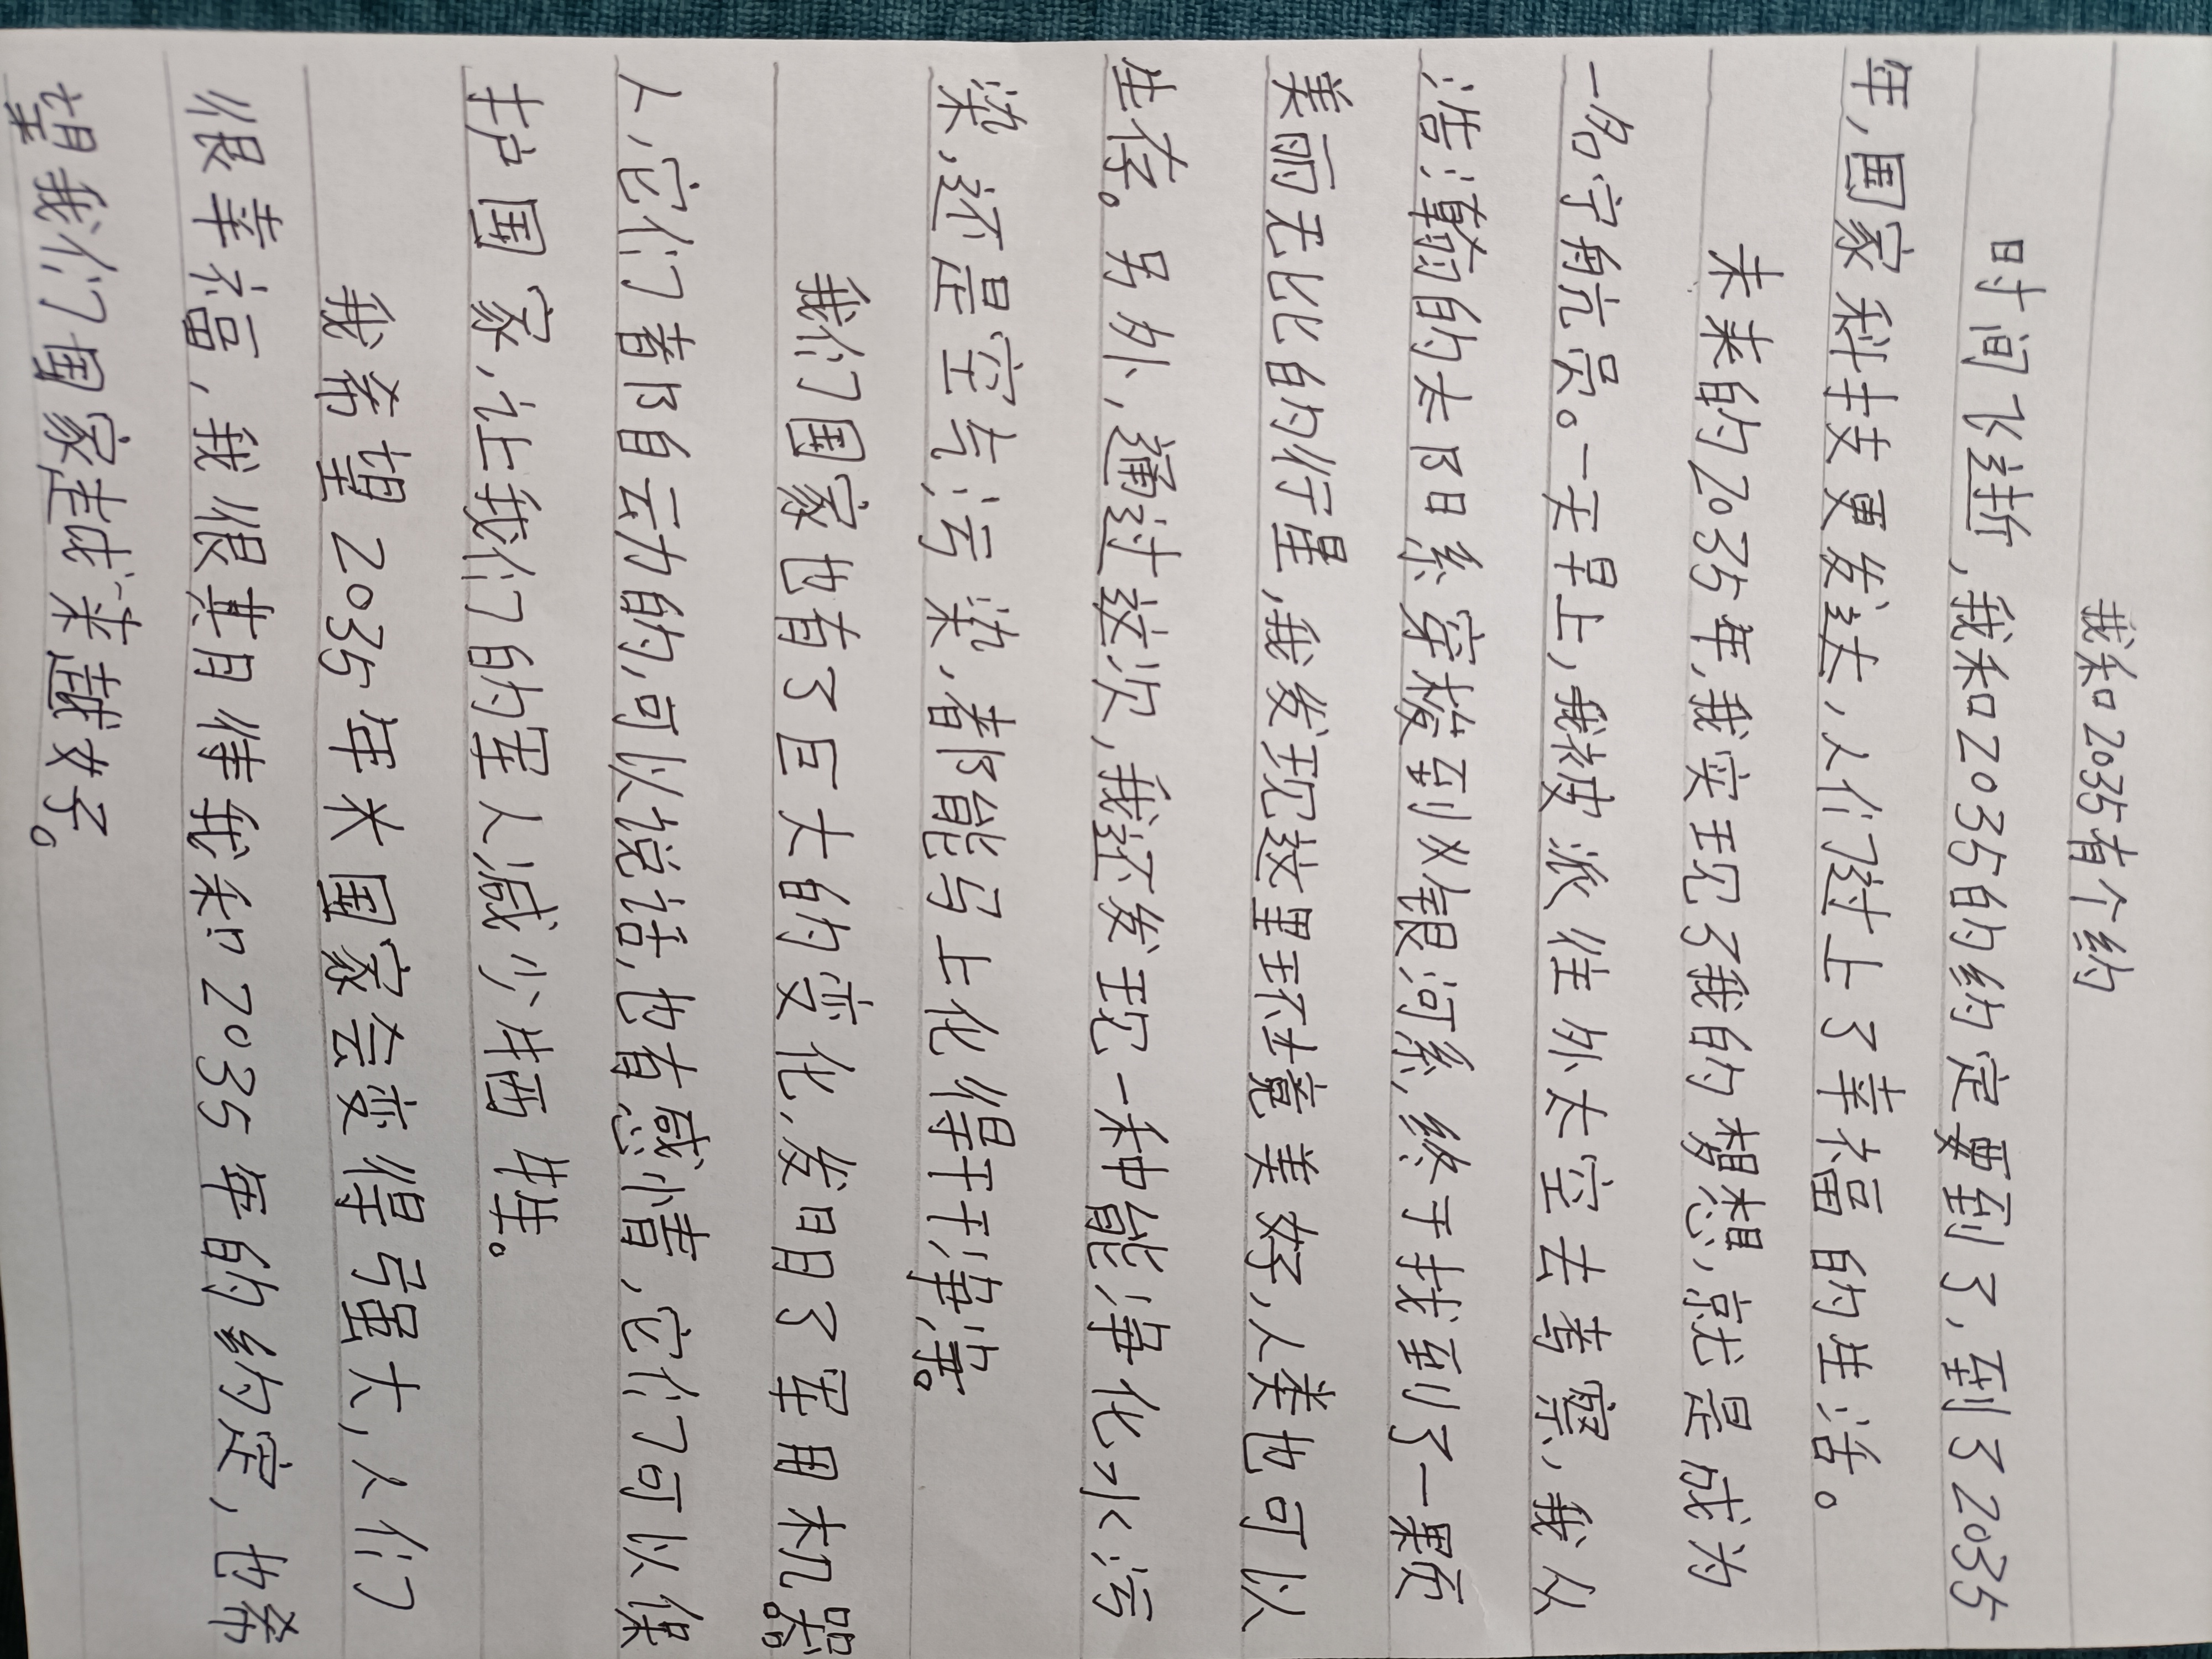 我和2035有个约
时间飞逝,我和2035的约定要到了,到了2035
年,国家科技更发达,人们过上了幸福的生活。
未来的2035年,我实现了我的梦想,就是成为
一名宇航员。一天早上,我被派往外太空去考察,我从
浩瀚的太阳系穿梭到外银河系,终于找到了一颗
美丽无比的行星,我发现这里环境美好,人类也可以
生存。另外,通过这次,我还发现一种能净化水污
染,还是空气污染,都能马上化得干干净净。
我们国家也有了巨大的变化,发明了军用机器
人,它们都自动的,可以说话,也有感情,它们可以保
护国家,让我们的军人减少牺牲。
我希望2035年米国家会变得强大,人们
很幸福,我很期待我和2035年的约定,也希
望我们国家越来越好。